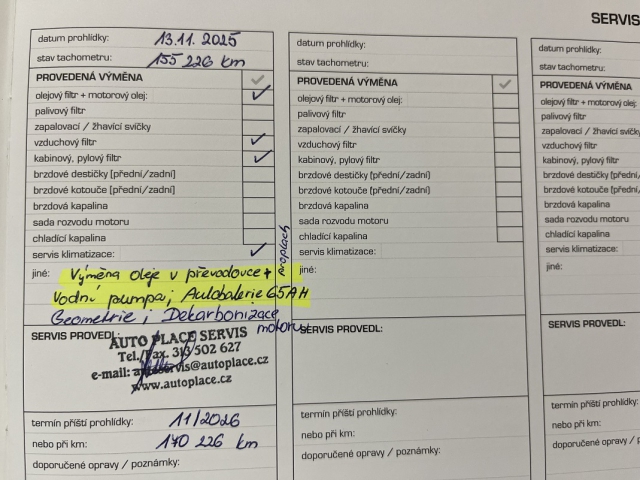 SERVIS
datum prohlídky: 13.11. 2025
stav tachometru: 155 226 km
PROVEDENÁ VÝMĚNA
olejový filtr + motorový olej:
palivový filtr
zapalovací / žhavící svíčky
vzduchový filtr
kabinový, pylový filtr
brzdové destičky (přední/zadní)
brzdové kotouče (přední/zadní)
brzdová kapalina
sada rozvodu motoru
chladící kapalina
servis klimatizace:
jiné: Výměna oleje v převodovce + proplach
Vodní pumpa; Autobaterie 65AH
Geometrie; Dekarbonizace
motoru
SERVIS PROVEDL:
AUTO PLACE SERVIS
Tel./Fax. 313 502 627
e-mail: autoservis@autoplace.cz
www.autoplace.cz
termín příští prohlídky: 11/2026
nebo při km: 170 226 km
doporučené opravy / poznámky:
datum prohlídky:
stav tachometru:
PROVEDENÁ VÝMĚNA
olejový filtr + motorový olej:
palivový filtr
zapalovací / žhavící svíčky
vzduchový filtr
kabinový, pylový filtr
brzdové destičky (přední/zadní)
brzdové kotouče (přední/zadní)
brzdová kapalina
sada rozvodu motoru
chladící kapalina
servis klimatizace:
jiné:
SERVIS PROVEDL:
termín příští prohlídky:
nebo při km:
doporučené opravy / poznámky:
datum prohlídky:
stav tachometru:
PROVEDENÁ VÝMĚNA
olejový filtr + motorový
palivový filtr
zapalovací / žhavící
vzduchový filtr
kabinový, pylový filtr
brzdové destičky (přední/
brzdové kotouče (přední/
brzdová kapalina
sada rozvodu motoru
chladící kapalina
servis klimatizace:
jiné:
SERVIS PROVEDL:
termín příští prohlídky:
nebo při km:
doporučené opravy / pozn